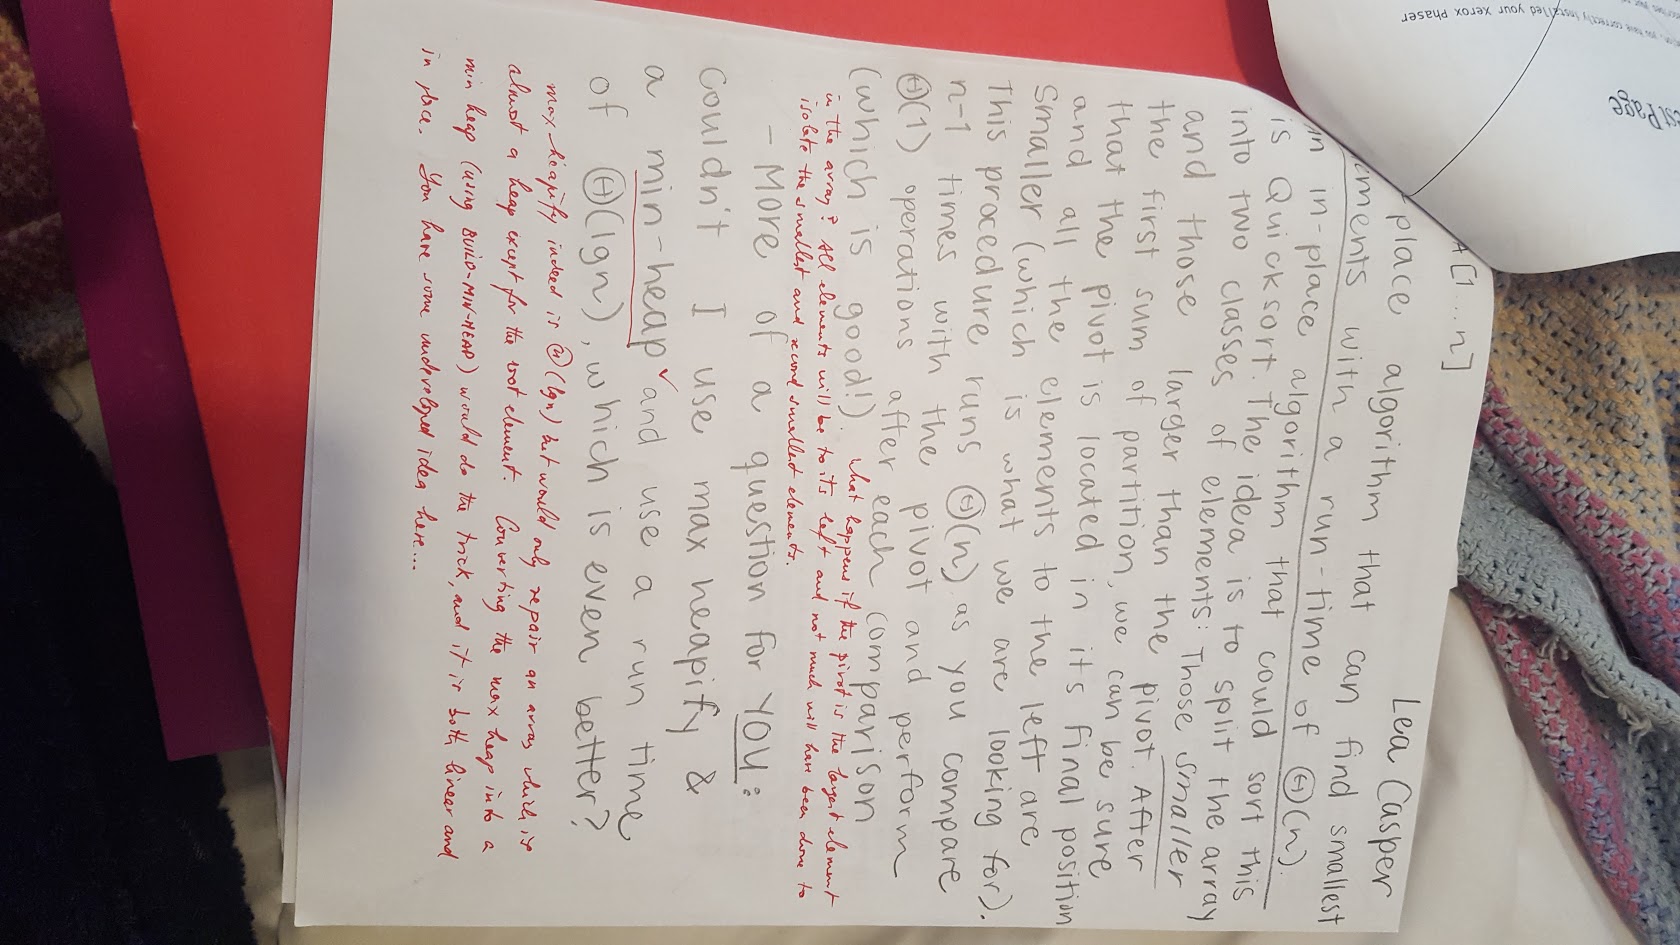 Lea Casper
A[1...n]
place algorithm that can find smallest
ements with a run-time of Θ(n).
in-place algorithm that could sort this
is Quicksort. The idea is to split the array
into two classes of elements: Those smaller
and those larger than the pivot. After
the first sum of partition, we can be sure
that the pivot is located in its final position
and all the elements to the left are
smaller (which is what we are looking for).
This procedure runs Θ(n) as you compare
n-1 times with the pivot and perform
Θ(1) operations after each comparison
(which is good!)
what happens if the pivot is the largest element
in the array? All elements will be to its left and not much will have been done to
isolate the smallest and second smallest elements.
- More of a question for YOU:
Couldn't I use max heapify &
a min-heap ✓ and use a run time
of Θ(lgn), which is even better?
max-heapify indeed is Θ(lgn) but would only repair an array which is
almost a heap except for the root element. Converting the max heap into a
min heap (using BUILD-MIN-HEAP) would do the trick, and it is both linear and
in place. You have some undeveloped idea here...
est Page
you have correctly installed your xerox phaser